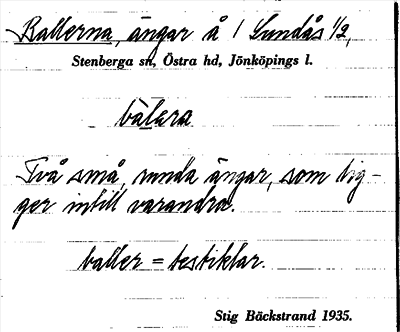 Ballerna, ängar å 1 Sundås 1/2,
Stenberga sn, Östra hd, Jönköpings l.
bàlara
Två små, runda ängar, som lig-
ger intill varandra.
baller = testiklar.
Stig Bäckstrand 1935.